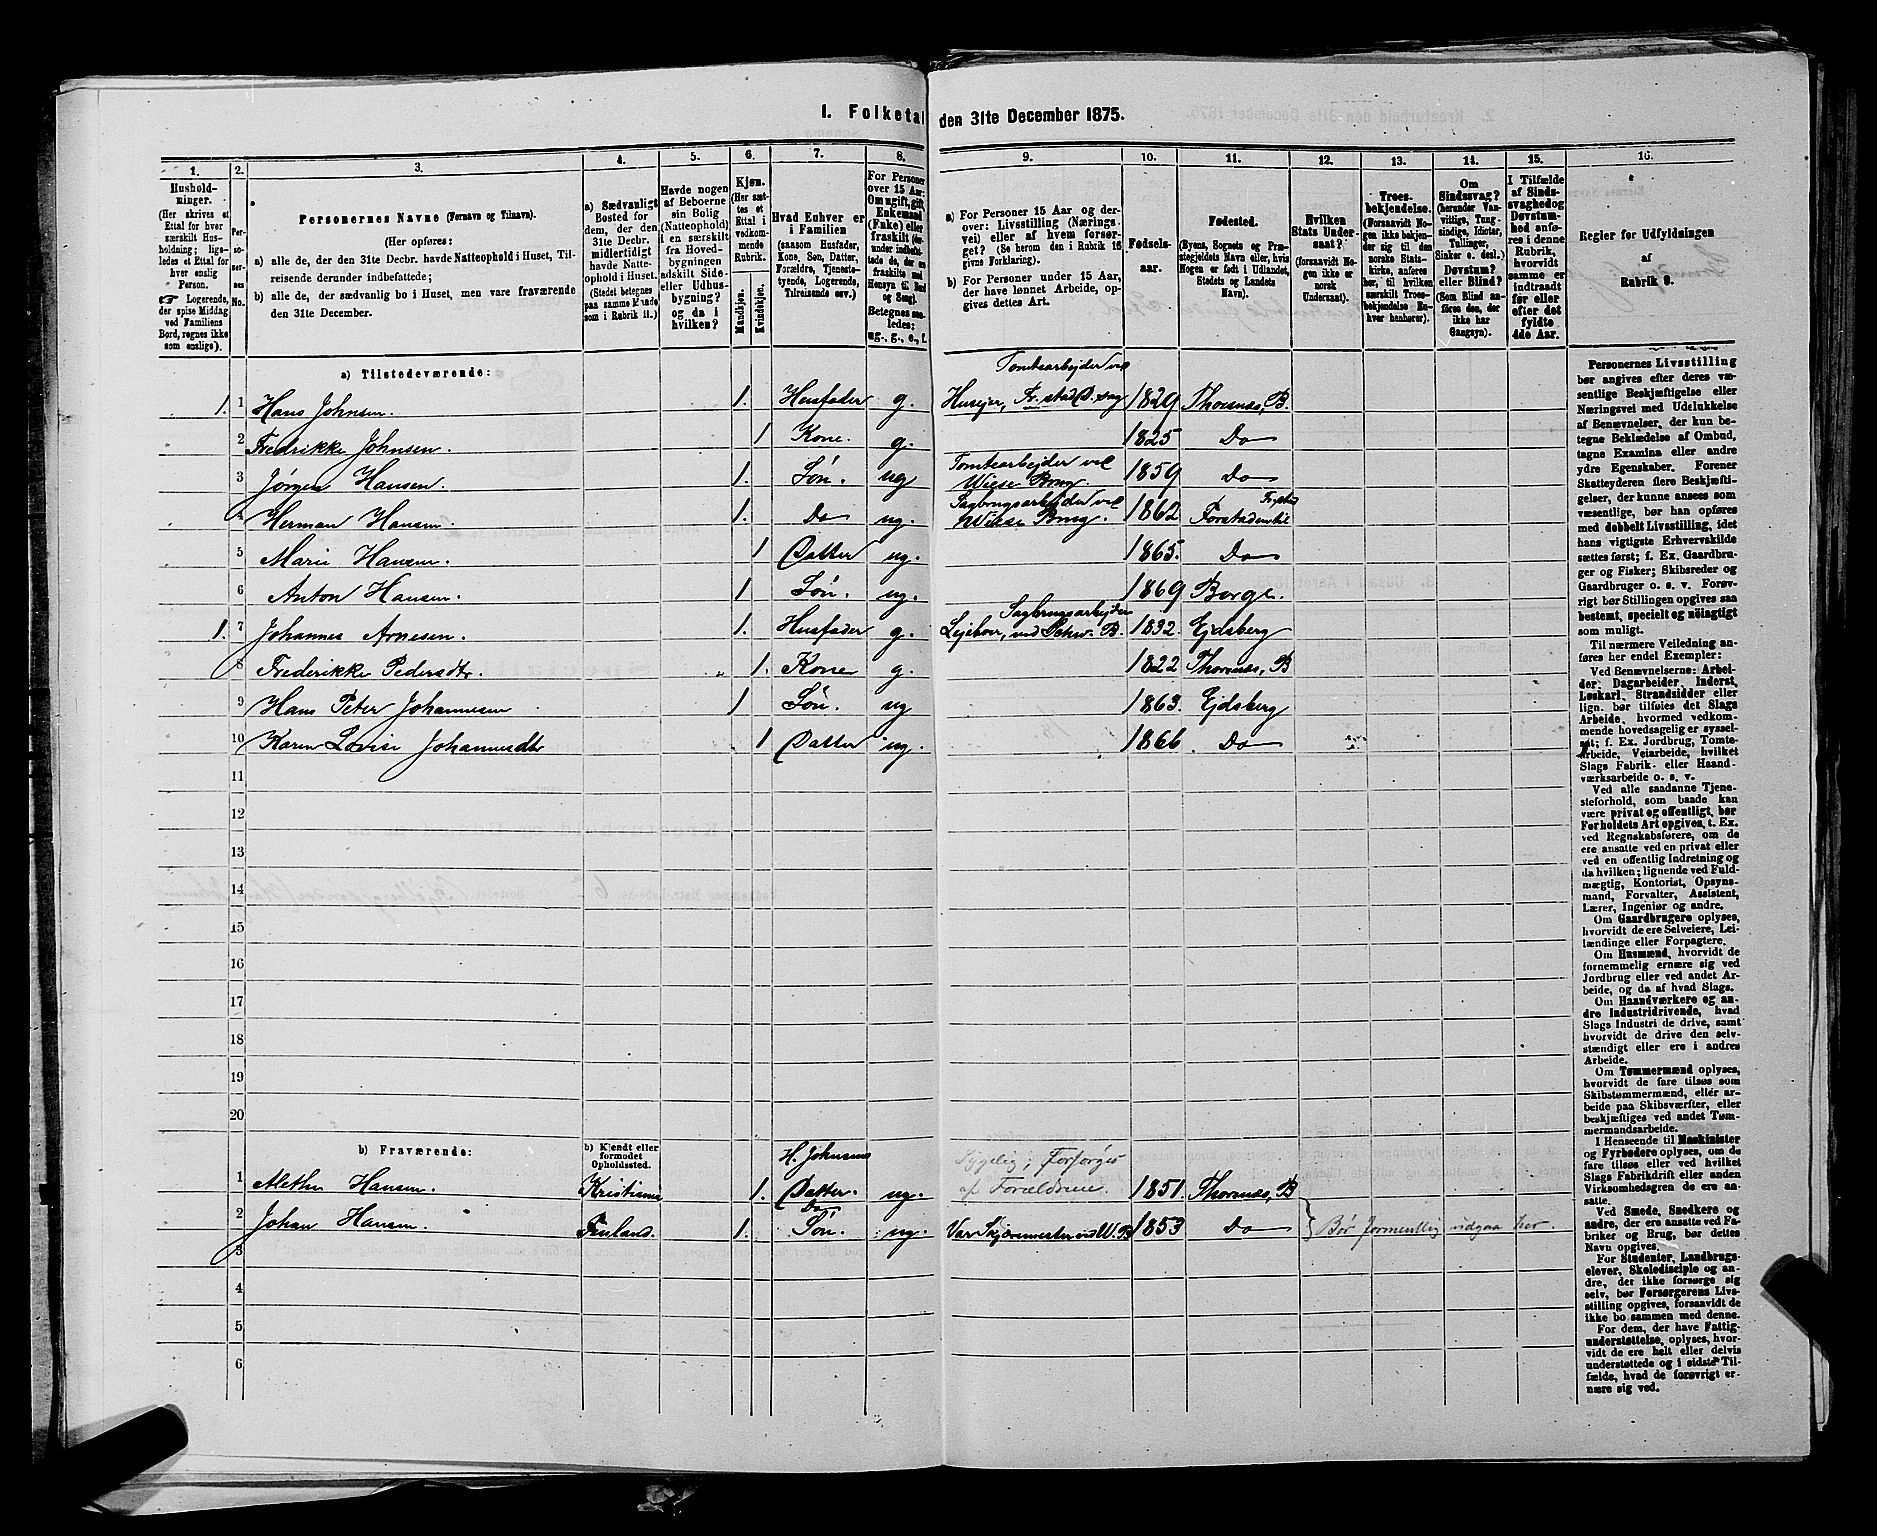 1. Folketal den 31te December 1875.
1. 2. 3. 4. 5. 6. 7. 8. 9. 10. 11. 12. 13. 14. 15. 16.
Hushold-
ninger.
(Her skrives et
Ettal for hver
særskilt Hus-
holdning; lige-
ledes et Ettal for
hver enslig
Person.
☞ Logerende,
der spise Middag
ved Familiens
Bord, regnes ikke
som enslige).
Per-
so-
ner-
nes
No.
Personernes Navne (Fornavn og Tilnavn).
(Her opføres:
a) alle de, der den 31te Decbr. havde Natteophold i Huset, Til-
reisende derunder indbefattede;
b) alle de, der sædvanlig bo i Huset, men vare fraværende
den 31te December.
a) Sædvanligt
Bosted for
dem, der den
31te Decbr.
midlertidigt
havde Natte-
ophold i Huset.
(Stedet betegnes
paa samme Maade
som i Rubrik 11.)
Havde nogen
af Beboerne
sin Bolig
(Natteophold)
i en særskilt
fra Hoved-
bygningen
adskilt Side-
eller Udhus-
bygning?
og da i
hvilken?
Kjøn.
(Her sæt-
tes et
Ettal i
vedkom-
mende
Rubrik.
Mandkjøn.
Kvindekjøn.
Hvad Enhver er
i Familien
(saasom Husfader,
Kone, Søn, Datter,
Forældre, Tjeneste-
tyende, Logerende,
Tilreisende osv.)
For Personer
over 15 Aar:
Om ugift, gift,
Enkemand
(Enke) eller
fraskilt
Betegnes saa-
ledes:
ug., g., e., f.
a) For Personer 15 Aar og der-
over: Livsstilling (Nærings-
vei) eller af hvem forsør-
get? (Se herom den i Rubrik 16
givne Forklaring).
b) For Personer under 15 Aar,
der have lønnet Arbeide, op-
gives dettes Art.
Fødsels-
aar.
Fødested.
(Byens, Sognets og Præ-
stegjeldets Navn eller, hvis
Nogen er født i Udlandet,
Stedets og Landets
Navn).
Hvilken
Stats Under-
saat?
(forsaavidt No-
gen ikke er
norsk
Undersaat).
Troes-
bekjendelse.
(Forsaavidt No-
gen ikke bekjen-
der sig til den
norske Stats-
kirke, anføres
her, til hvilken
særskilt Troes-
bekjendelse En-
hver henhører).
Om
Sindssvag?
(herunder Van-
vittige, Tung-
sindige, Idioter,
Tullinger,
Sinker o. desl.)
Døvstum?
eller Blind?
(Som Blind an-
føres den, der
ikke har
Gangsyn).
I Tilfælde
af Sinds-
svaghed og
Døvstum-
hed anfø-
res i denne
Rubrik,
hvorvidt
samme er
indtraadt
før eller
efter det
fyldte
4de Aar.
Regler for Udfyldningen
af
Rubrik 9.
a) Tilstedeværende:
1. 1 Hans Johnsen. 1. Husfader g. Husejer, Tomtearbejder ved Fr.stad D.sag 1829 Thorsnes, B.
2 Fredrikke Johnsen. 1 Kone. g. 1825 Do
3 Jørgen Hansen. 1. Søn. ug Tomtearbejder ved Wiese Brug. 1859 Do
4 Herman Hansen. 1. Do ug. Sagbrugsarbejder ved Wiese Brug. 1862 Forstaden til Fr.stad
5 Marie Hansen. 1 Datter ug. 1865. Do
6 Anton Hansen. 1 Søn. ug. 1869 Borge.
1. 7 Johannes Arnesen. 1. Husfader g. Lejeboer, Sagbrugsarbejder ved Schw. B. 1832. Ejdsberg
8 Frederikke Pedersdtr. 1. Kone g. 1822 Thorsnes, B
9 Hans Peter Johannesen 1 Søn. ug 1863. Ejdsberg
10 Karen Lovise Johannesdtr 1 Datter ug. 1866. Do
11
12
13
14
15
16
17
18
19
20
b) Fraværende: b) Kjendt eller
formodet
Opholdssted.
1 Alethe Hansen. Kristiania 1. H. Johnsens Datter. ug. Sygelig; Forsørges af Forældrene. 1851. Thorsnes, B
2 Johan Hansen. Finland. 1. Do Søn. ug. Var Skjæremester ved W. B 1853 Do } Bør formentlig udgaa her.
3
4
5
6
Personernes Livsstilling
bør angives efter deres væ-
sentlige Beskjæftigelse eller
Næringsvei med Udelukkelse
af Benævnelser, der kun be-
tegne Beklædelse af Ombud,
tagne Examina eller andre
ydre Egenskaber. Forener
Skatteyderen flere Beskjæfti-
gelser, der kunne ansees som
væsentlige, bør han opføres
med dobbelt Livsstilling, idet
hans vigtigste Erhvervskilde
sættes først; f. Ex. Gaardbru-
ger og Fisker; Skibsreder og
Gaardbruger o. s. v. Forøv-
rigt bør Stillingen opgives saa
bestemt, specielt og nøiagtigt
som muligt.
Til nærmere Veiledning an-
føres her endel Exempler:
Ved Benævnelserne: Arbei-
der, Dagarbeider, Inderst,
Løskarl, Strandsidder eller
lign. bør tilføies det Slags
Arbeide, hvormed vedkom-
mende hovedsagelig er syssel-
sat; f. Ex. Jordbrug, Tomte-
arbeide, Veiarbeide, hvilket
Slags Fabrik- eller Haand-
værksarbeide o. s. v.
Ved alle saadanne Tjene-
steforhold, som baade kan
være privat og offentligt, bør
Forholdets Art opgives, t. Ex.
ved Regnskabsførere, om de
ere ansatte ved en privat eller
ved en offentlig Indretning og
da hvilken; lignende ved Fuld-
mægtig, Kontorist, Opsyns-
mand, Forvalter, Assistent,
Lærer, Ingeniør og andre.
Om Gaardbrugere oplyses,
hvorvidt de ere Selveiere, Lei-
lændinge eller Forpagtere.
Om Husmænd, hvorvidt de
fornemmelig ernære sig ved
Jordbrug eller ved andet Ar-
beide, og da af hvad Slags.
Om Haandværkere og an-
dre Industridrivende, hvad
Slags Industri de drive, samt
hvorvidt de drive den selv-
stændigt eller ere i andres
Arbeide.
Om Tømmermænd oplyses,
hvorvidt de fare tilsøs som
Skibstømmermænd, eller ar-
beide paa Skibsværfter, eller
beskjæftiges ved andet Tøm-
mermandsarbeide.
I Henseende til Maskinister
og Fyrbødere oplyses, om de
fare tilsøs eller ved hvilket
Slags Fabrikdrift eller anden
Virksomhedsgren de ere an-
satte.
Ved Smede, Snedkere og
andre, der ere ansatte ved Fa-
briker og Brug, bør dettes
Navn opgives.
For Studenter, Landbrugs-
elever, Skoledisciple og an-
dre, der ikke forsørge sig
selv, bør Forsørgerens Livs-
stilling opgives, forsaavidt de
ikke bo sammen med denne.
For dem, der have Fattig-
understøttelse, oplyses, hvor-
vidt de ere helt eller delvis
understøttede og i sidste Til-
fælde, hvad de forøvrigt er-
nære sig ved.